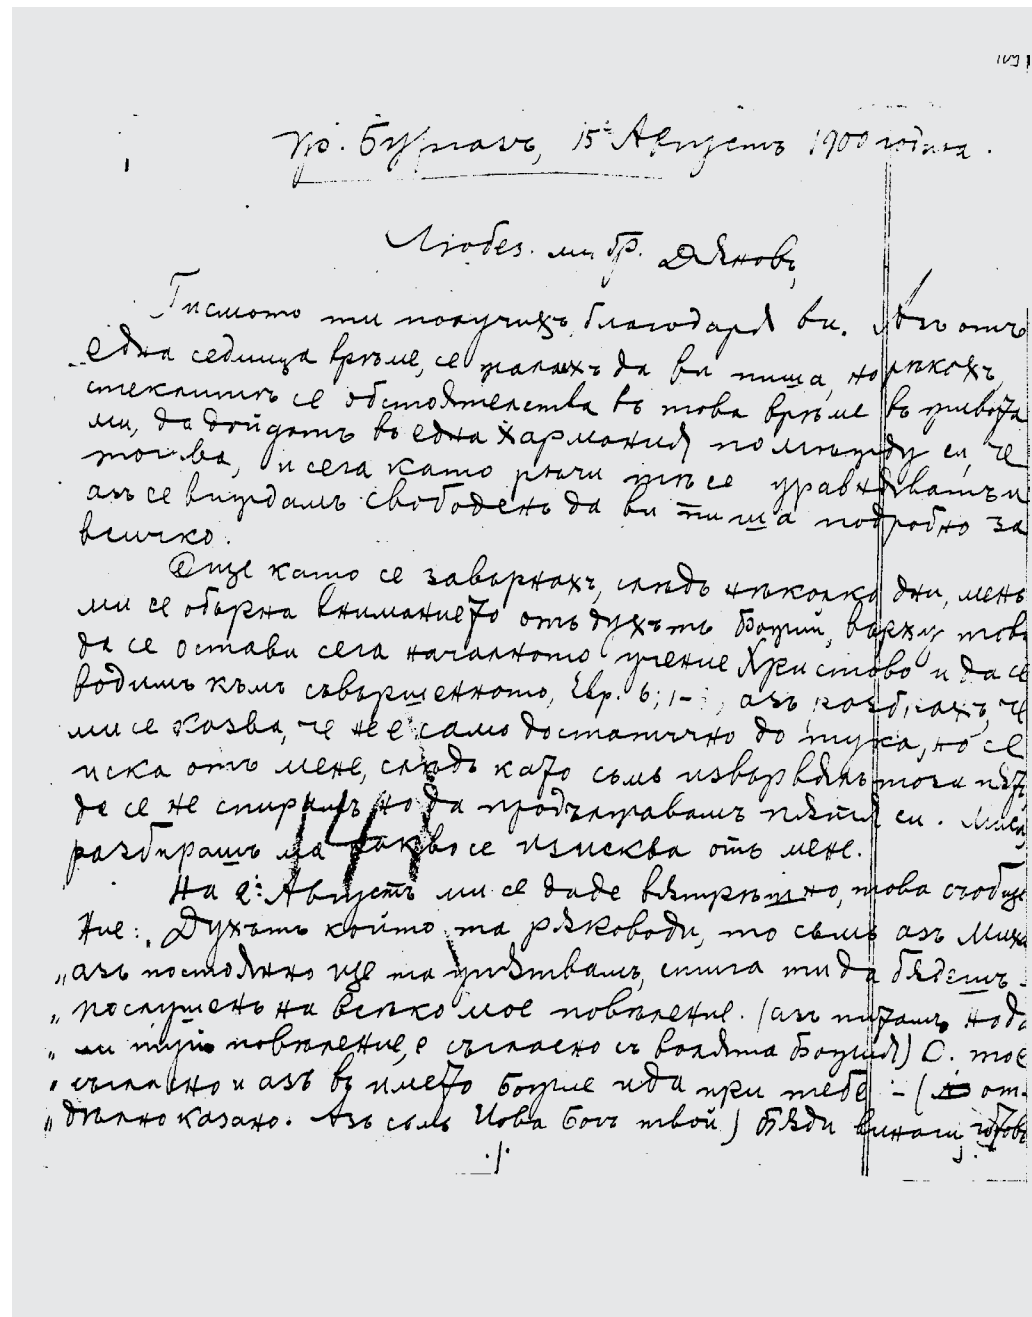 гр. Бургасъ, 15й Августъ 1900 година.
Любез. ми бр. Дѫновъ,
Писмото ти получихъ, благодарѭ ви. Азъ отъ
една седмица врѣме, се канахъ да ви пиша, но нѣкохъ
стеклитѣ се обстоятелства въ това врѣме въ живота
ми, да дойдатъ въ една хармония помѣжду си, че
тогава, и сега като рѣчи тѣ се уравняватъ и
азъ се виждамъ свободенъ да ви пиша подробно за
всичко.
Още като се завърнахъ, слѣдъ нѣколко дни, мень
ми се обърна вниманието отъ духътъ Божий, върху това
да се остави сега началното учение Христово и да се
водимъ къмъ съвършенното, Евр. 6; 1- азъ разбрахъ, че
ми се казва, че не е само достатъчно до тука, но се
иска отъ мене, слѣдъ като съмъ извървѣлъ тоя пѫть
да се не спирамъ, но да продължавамъ пѫтя си.
разбирашъ ли какво се изисква отъ мене.
На 2й Августъ ми се даде вѫтрѣшно, това съобще
ние: Духътъ който та рѫководи, то съмъ азъ Миха
„азъ постоянно ще та упѫтвамъ, стига ти да бѫдешъ
„послушенъ на всѣко мое повѣление. (азъ питамъ, но да
„ли туй повѣление, е съгласно съ волята Божия) О. тое
„съгласно и азъ въ името Божие ида при тебе - ( от
„дѣлно казано. Азъ съмъ Иова Богъ твой) бѫди винаги готовъ
./.